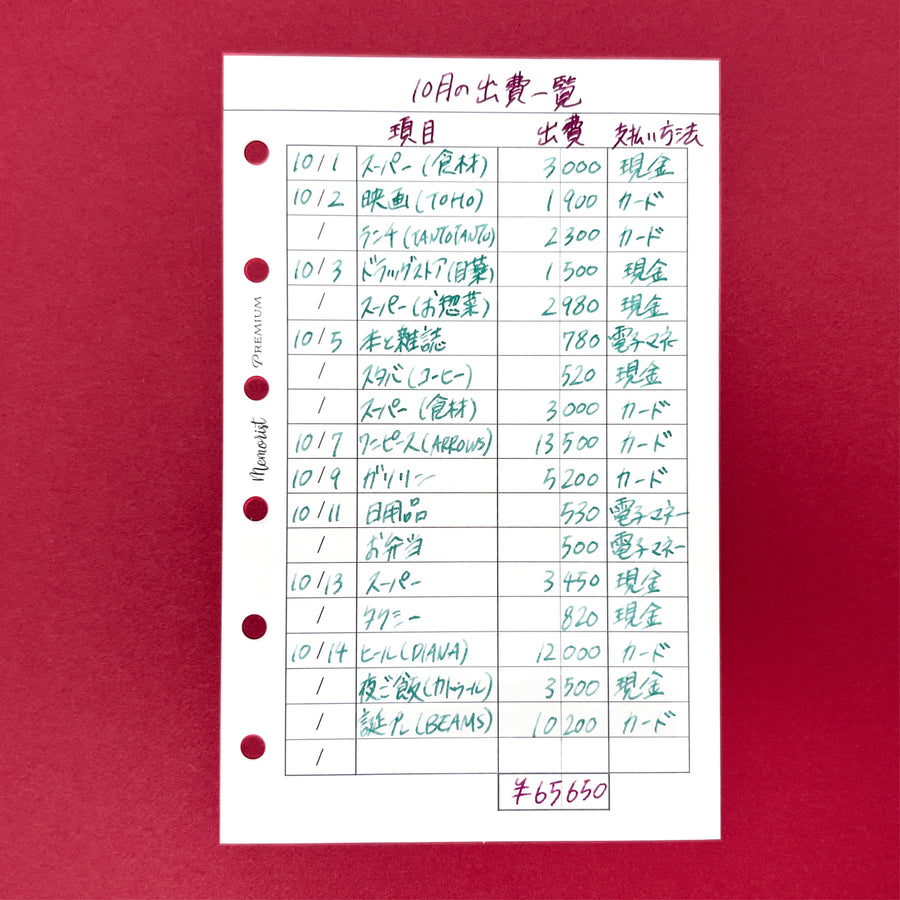 10月の出費一覧
項目 出費 支払い方法
10/1 スーパー(食材) 3000 現金
10/2 映画(TOHO) 1900 カード
/ ランチ(TANTOTANTO) 2300 カード
10/3 ドラッグストア(目薬) 1500 現金
/ スーパー(お惣菜) 2980 現金
10/5 本と雑誌 780 電子マネー
/ スタバ(コーヒー) 520 現金
/ スーパー(食材) 3000 カード
10/7 ワンピース(ARROWS) 13500 カード
10/9 ガソリン 5200 カード
10/11 日用品 530 電子マネー
/ お弁当 500 電子マネー
10/13 スーパー 3450 現金
/ タクシー 820 現金
10/14 ヒール(DIANA) 12000 カード
/ 夜ご飯(カトゥール) 3500 現金
/ 誕プレ(BEAMS) 10200 カード
/
¥65650
PREMIUM
Memorist